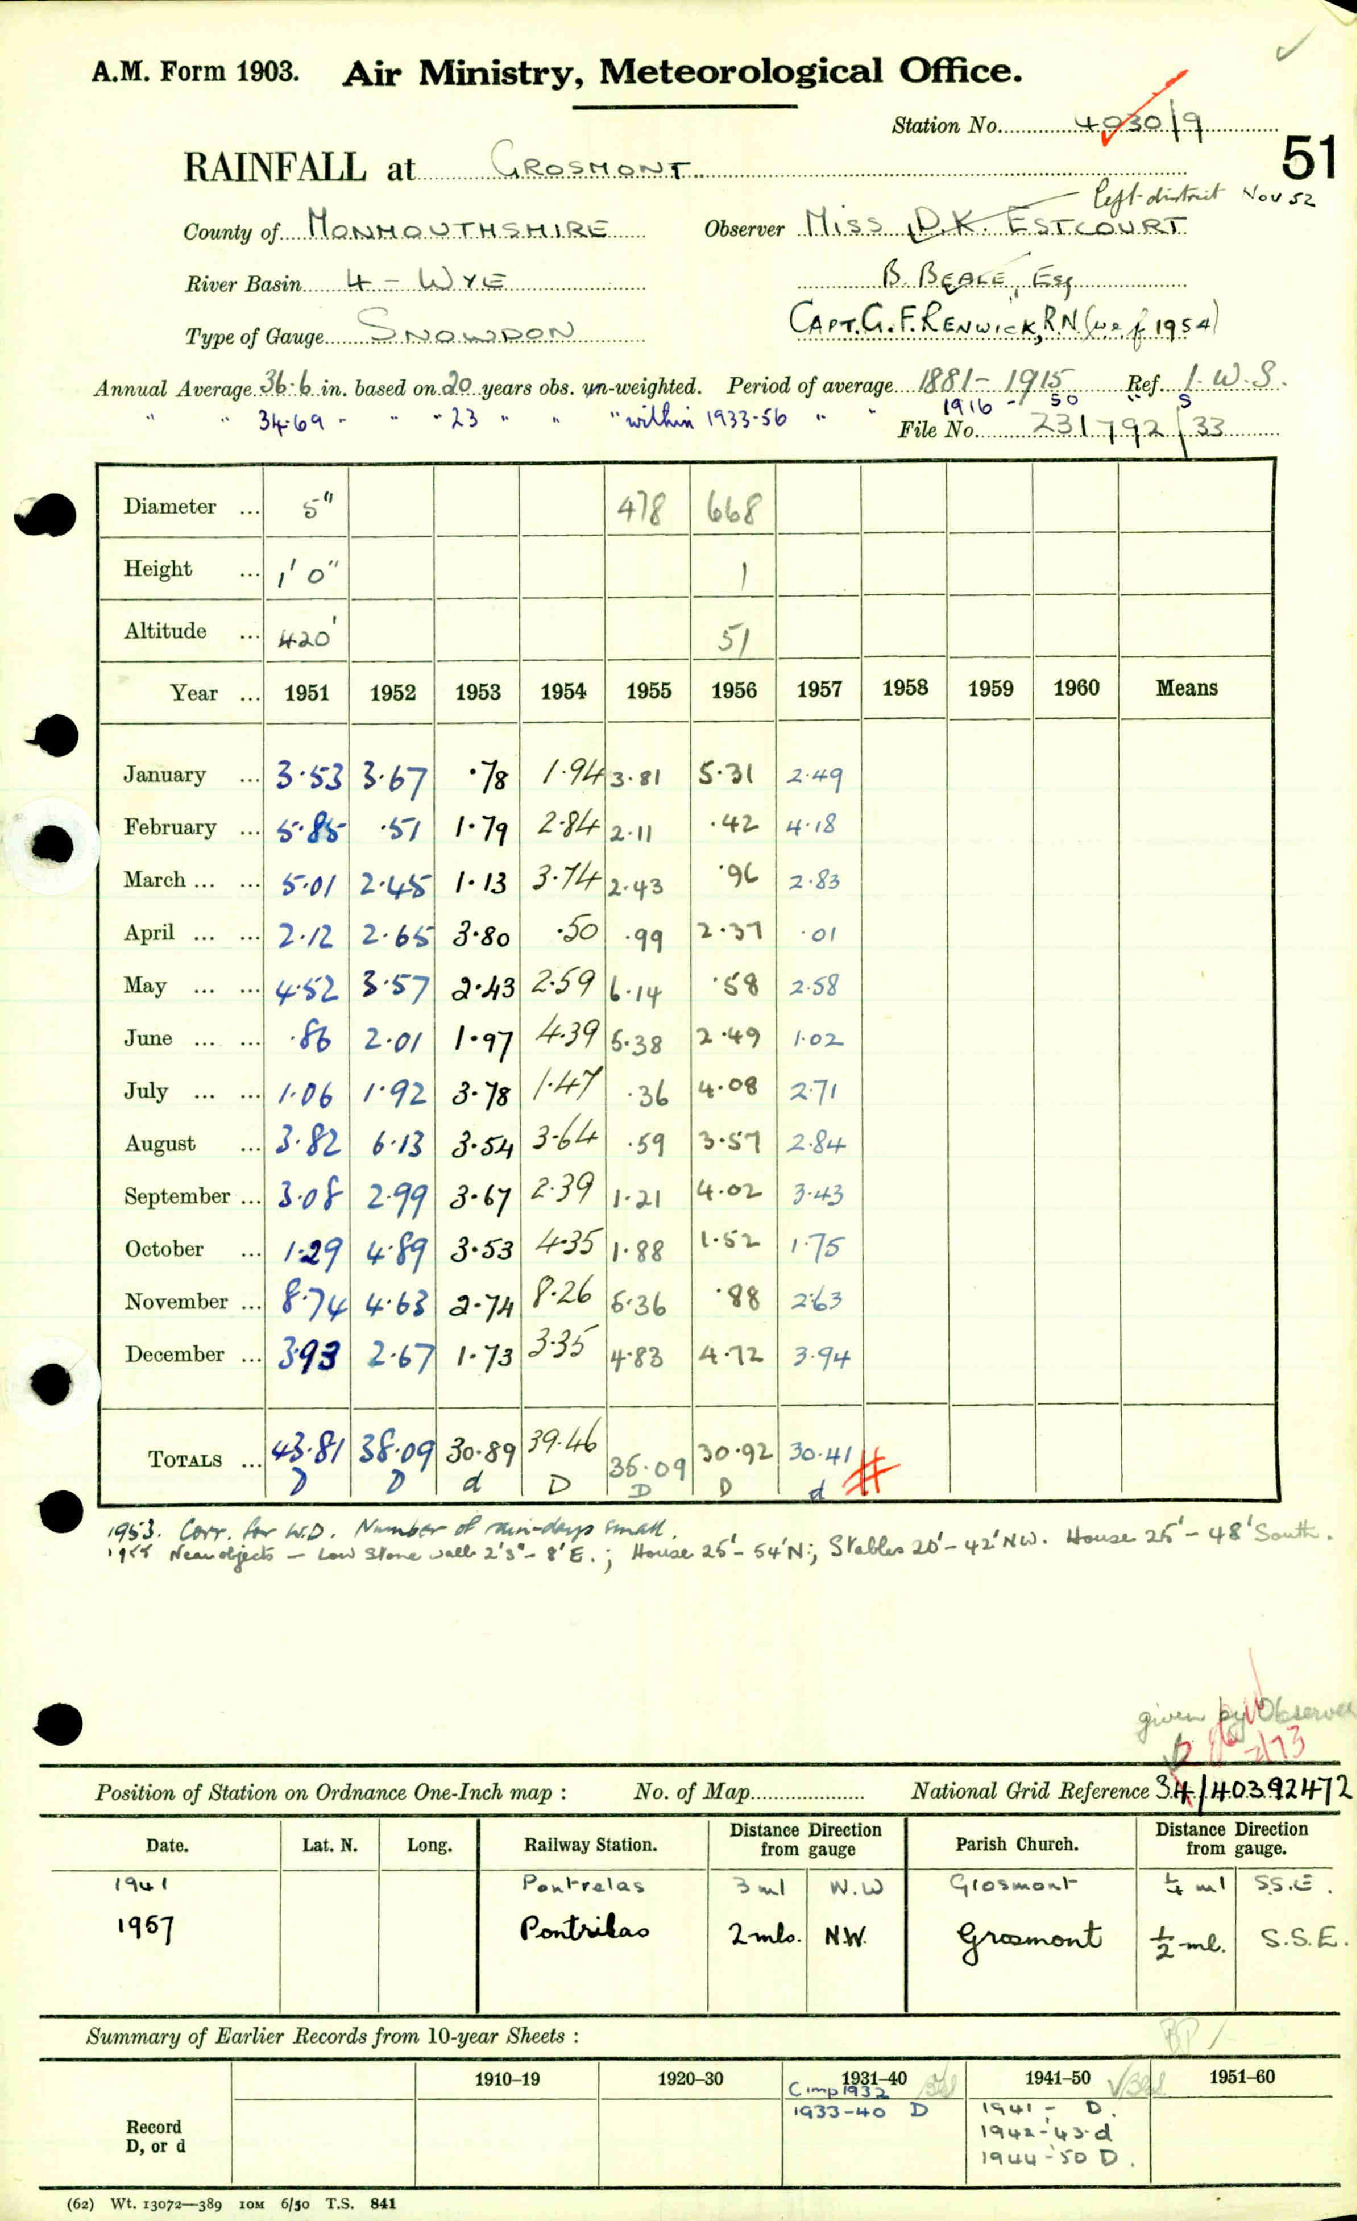 A.M. Form 1903. Air Ministry, Meteorological Office.
Station No. 4030/9
51
RAINFALL at GROSMONT
left district Nov 52
County of MONMOUTHSHIRE Observer MISS D.K. ESTCOURT
River Basin 4 - WYE B. BEALE, Esq
Type of Gauge SNOWDON CAPT. G. F. RENWICK, R.N. (w e f 1954)
Annual Average 36.6 in. based on 20 years obs. un-weighted. Period of average 1881-1915 Ref. I.W.S.
" " 34.69 - " " 23 " " " within 1933-56 " " 1916 - 50 " S
File No. 231792/33
Diameter ... 5" 478 668
Height ... 1' 0" 1
Altitude ... 420' 51
Year ... 1951 1952 1953 1954 1955 1956 1957 1958 1959 1960 Means
January ... 3.53 3.67 .78 1.94 3.81 5.31 2.49
February ... 5.85 .51 1.79 2.84 2.11 .42 4.18
March ... ... 5.01 2.45 1.13 3.74 2.43 .96 2.83
April ... ... 2.12 2.65 3.80 .50 .99 2.37 .01
May ... ... 4.52 3.57 2.43 2.59 6.14 .58 2.58
June ... ... .86 2.01 1.97 4.39 5.38 2.49 1.02
July ... ... 1.06 1.92 3.78 1.47 .36 4.08 2.71
August ... 3.82 6.13 3.54 3.64 .59 3.57 2.84
September ... 3.08 2.99 3.67 2.39 1.21 4.02 3.43
October ... 1.29 4.89 3.53 4.35 1.88 1.52 1.75
November ... 8.74 4.63 2.74 8.26 5.36 .88 2.63
December ... 3.93 2.67 1.73 3.35 4.83 4.72 3.94
TOTALS ... 43.81 38.09 30.89 39.46 35.09 30.92 30.41 #
D D d D D D d
1953. Corr. for W.D. Number of rain-days small.
1955 Near objects - Low stone wall 2'3" - 8' E. ; House 25' - 54' N; Stables 20' - 42' NW. House 25' - 48' South.
given by Observer
2/73
Position of Station on Ordnance One-Inch map : No. of Map National Grid Reference 34/40392472
Date. Lat. N. Long. Railway Station. Distance Direction from gauge Parish Church. Distance Direction from gauge.
1941 Pontrelas 3 ml N.W Grosmont 1/4 ml S.S.E.
1957 Pontrilas 2 mls. N.W. Grosmont 1/2 ml. S.S.E.
Summary of Earlier Records from 10-year Sheets :
BP /
1910–19 1920–30 1931–40 1941–50 1951–60
Record D, or d
Cimp 1932
1933-40 D
1941 - D.
1942-'43-d
1944-'50 D.
(62) Wt. 13072—389 10M 6/50 T.S. 841